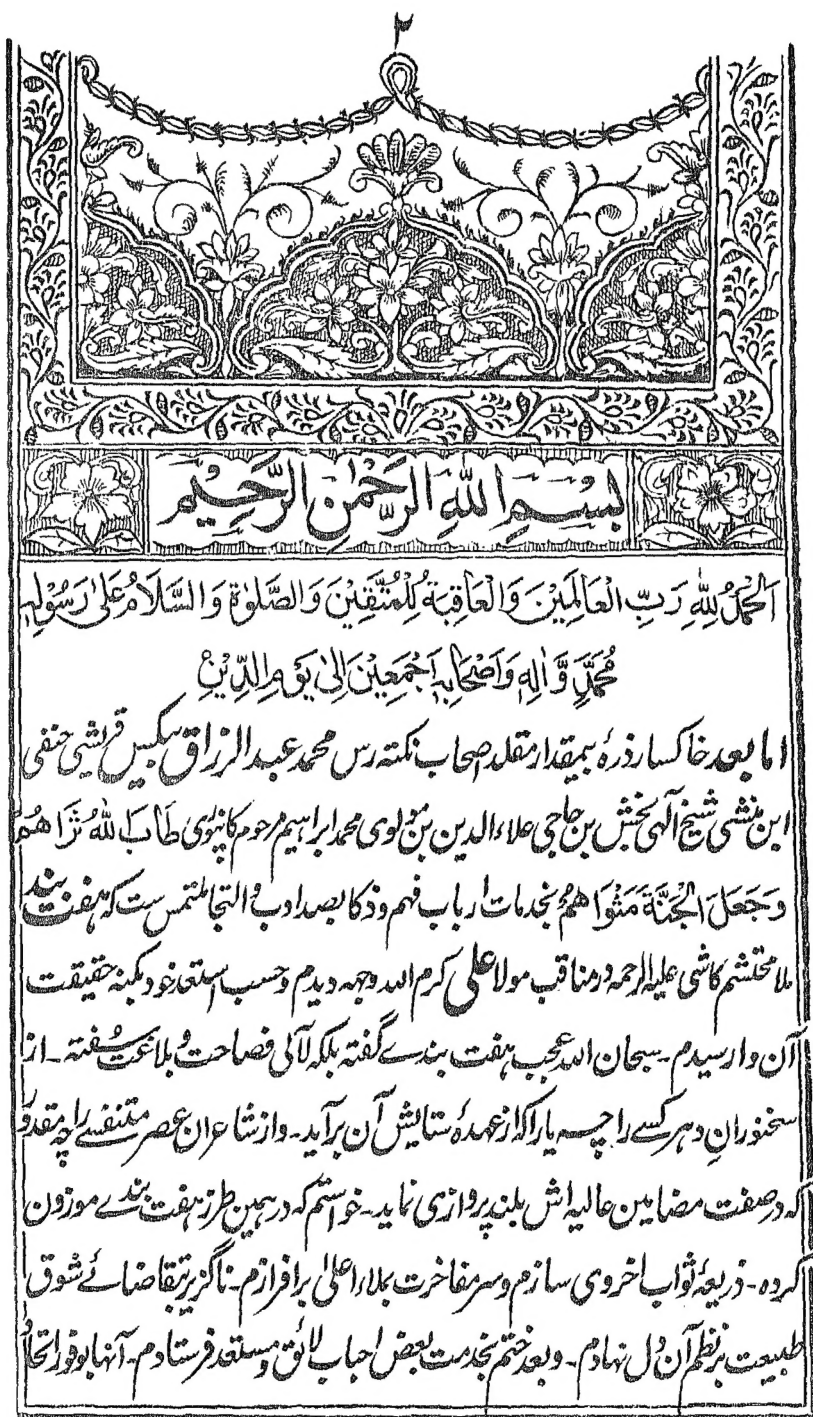 ۲
بِسْمِ اللهِ الرَّحْمٰنِ الرَّحِيْمِ
اَلْحَمْدُ لِلّٰهِ رَبِّ الْعَالَمِيْنَ وَالْعَاقِبَةُ لِلْمُتَّقِيْنَ وَالصَّلٰوةُ وَالسَّلَامُ عَلٰى رَسُوْلِهٖ
مُحَمَّدٍ وَّاٰلِهٖ وَاَصْحَابِهٖ اَجْمَعِيْنَ اِلٰى يَوْمِ الدِّيْنِ
اما بعد خاکسار ذرۂ بیمقدار مقلد اصحاب نکته رس محمد عبد الرزاق بیکس قریشی حنفی
ابن منشی شیخ آلهی بخش بن حاجی علاء الدین بن مولوی محمد ابراهیم مرحوم کانپوری طَابَ اللهُ ثَرَاهُمْ
وَجَعَلَ الْجَنَّةَ مَثْوَاهُمْ بخدمات ارباب فهم و ذکا بصد ادب و التجا ملتمس ست که هفت بند
ملا محتشم کاشی علیه الرحمه در مناقب مولا علی کرم الله وجهه دیدم و حسب استعد خود بکنه حقیقت
آن وارسیدم ۔ سبحان الله عجب هفت بندے گفته بلکه لآلی فصاحت و بلاغت سفته ۔ از
سخنورانِ دهر کسے را چه یارا که از عهدۂ ستایش آن برآید ۔ و از شاعران عصر متنفسے را چه مقدور
که در صفت مضامین عالیه اش بلند پروازی نماید ۔ خواستم که در همین طرز هفت بندے موزون
کرده ۔ ذریعۂ ثواب اخروی سازم و سر مفاخرت بملاء اعلیٰ برافرازم ۔ ناگزیر بتقاضائے شوق
طبیعت بر نظم آن دل نهادم ۔ و بعد ختم بخدمت بعض احباب لائق و مستعد فرستادم ۔ آنها بوفور اتحاد